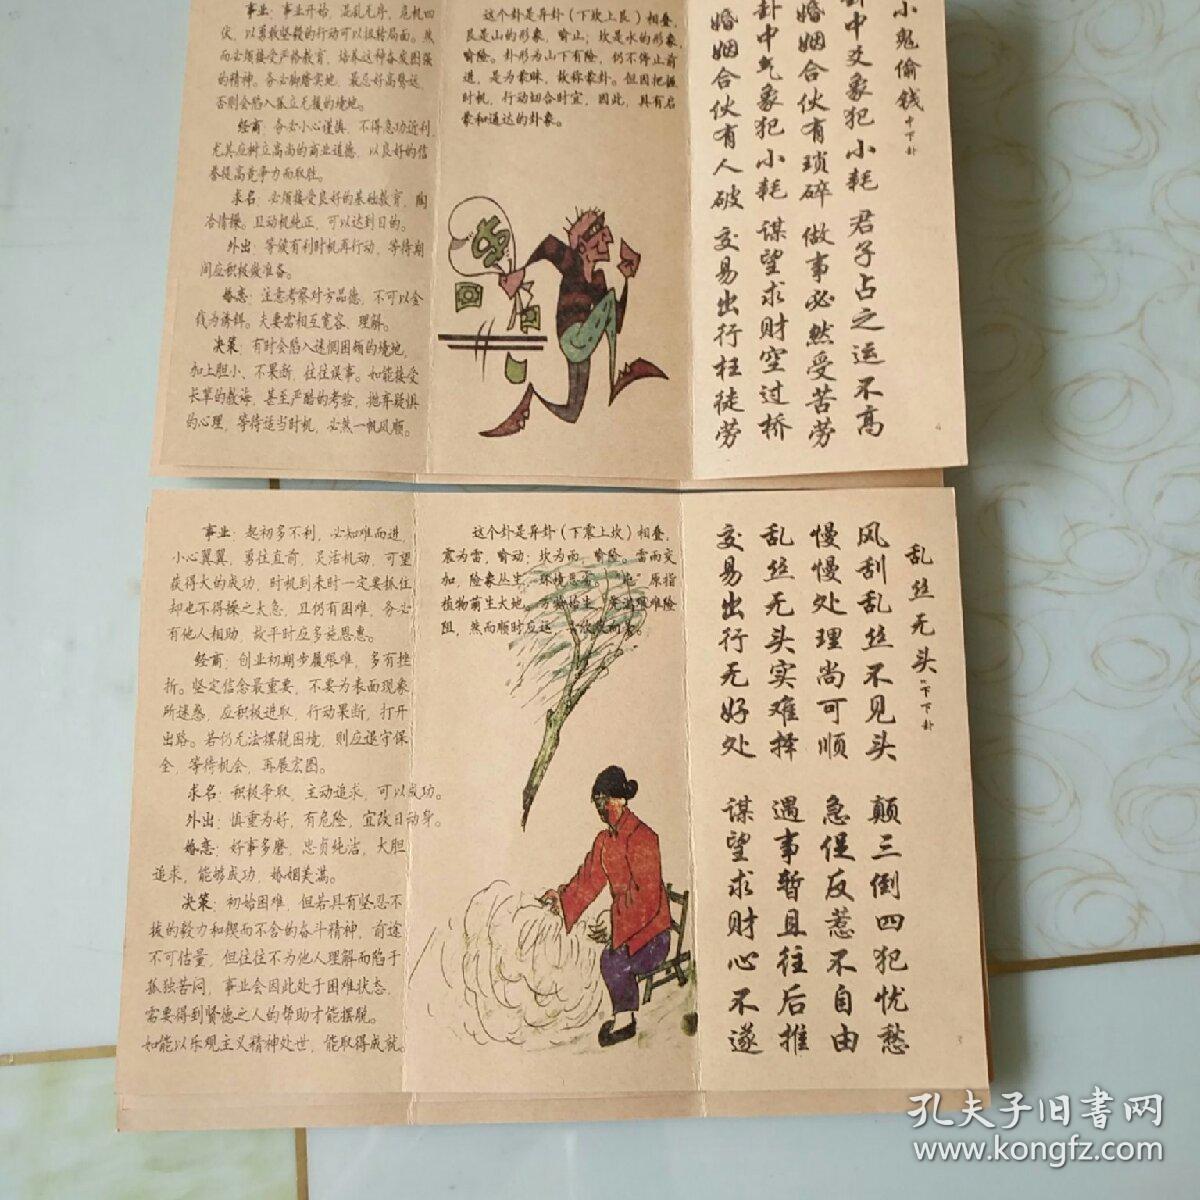 小鬼偷钱 中下卦
卦中爻象犯小耗 君子占之运不高
婚姻合伙有琐碎 做事必然受苦劳
卦中气象犯小耗 谋望求财空过桥
婚姻合伙有人破 交易出行枉徒劳
4
这个卦是异卦（下坎上艮）相叠，
艮是山的形象，喻止；坎是水的形象，
喻险。卦形为山下有险，仍不停止前
进，是为蒙昧，故称蒙卦。但因把握
时机，行动切合时宜，因此，具有启
蒙和通达的卦象。
事业：事业开始，混乱无序，危机四
伏，以勇敢坚毅的行动可以扭转局面。然
而必须接受严格教育，培养这种奋发图强
的精神。务必脚踏实地，最忌好高骛远，
否则会陷入孤立无援的境地。
经商：务必小心谨慎，不得急功近利，
尤其应树立高尚的商业道德，以良好的信
誉提高竞争力而取胜。
求名：必须接受良好的基础教育，陶
冶情操。且动机纯正，可以达到目的。
外出：等候有利时机再行动，等待期
间应积极做准备。
婚恋：注意考察对方品德，不可以金
钱为诱饵。夫妻需相互宽容、理解。
决策：有时会陷入迷惘困顿的境地，
加上胆小、不果断，往往误事。如能接受
长辈的教诲，甚至严酷的考验，抛弃疑惧
的心理，等待适当时机，必然一帆风顺。
乱丝无头 下下卦
风刮乱丝不见头 颠三倒四犯忧愁
慢慢处理尚可顺 急促反惹不自由
乱丝无头实难择 遇事暂且往后推
交易出行无好处 谋望求财心不遂
3
这个卦是异卦（下震上坎）相叠，
震为雷，喻动；坎为雨，喻险。雷雨交
加，险象丛生，环境恶劣。“屯”原指
植物萌生大地。万物始生，充满艰难险
阻，然而顺时应运，必欣欣向荣。
事业：起初多不利，必知难而进，
小心翼翼，勇往直前，灵活机动，可望
获得大的成功，时机到来时一定要抓住，
却也不得操之太急，且仍有困难，务必
有他人相助，故平时应多施恩惠。
经商：创业初期步履艰难，多有挫
折。坚定信念最重要，不要为表面现象
所迷惑，应积极进取，行动果断，打开
出路。若仍无法摆脱困境，则应退守保
全，等待机会，再展宏图。
求名：积极争取，主动追求，可以成功。
外出：慎重为好，有危险，宜改日动身。
婚恋：好事多磨，忠贞纯洁，大胆
追求，能够成功，婚姻美满。
决策：初始困难，但若具有坚忍不
拔的毅力和锲而不舍的奋斗精神，前途
不可估量，但往往不为他人理解而陷于
孤独苦闷，事业会因此处于困难状态，
需要得到贤德之人的帮助才能摆脱。
如能以乐观主义精神处世，能取得成就。
孔夫子旧书网
www.kongfz.com